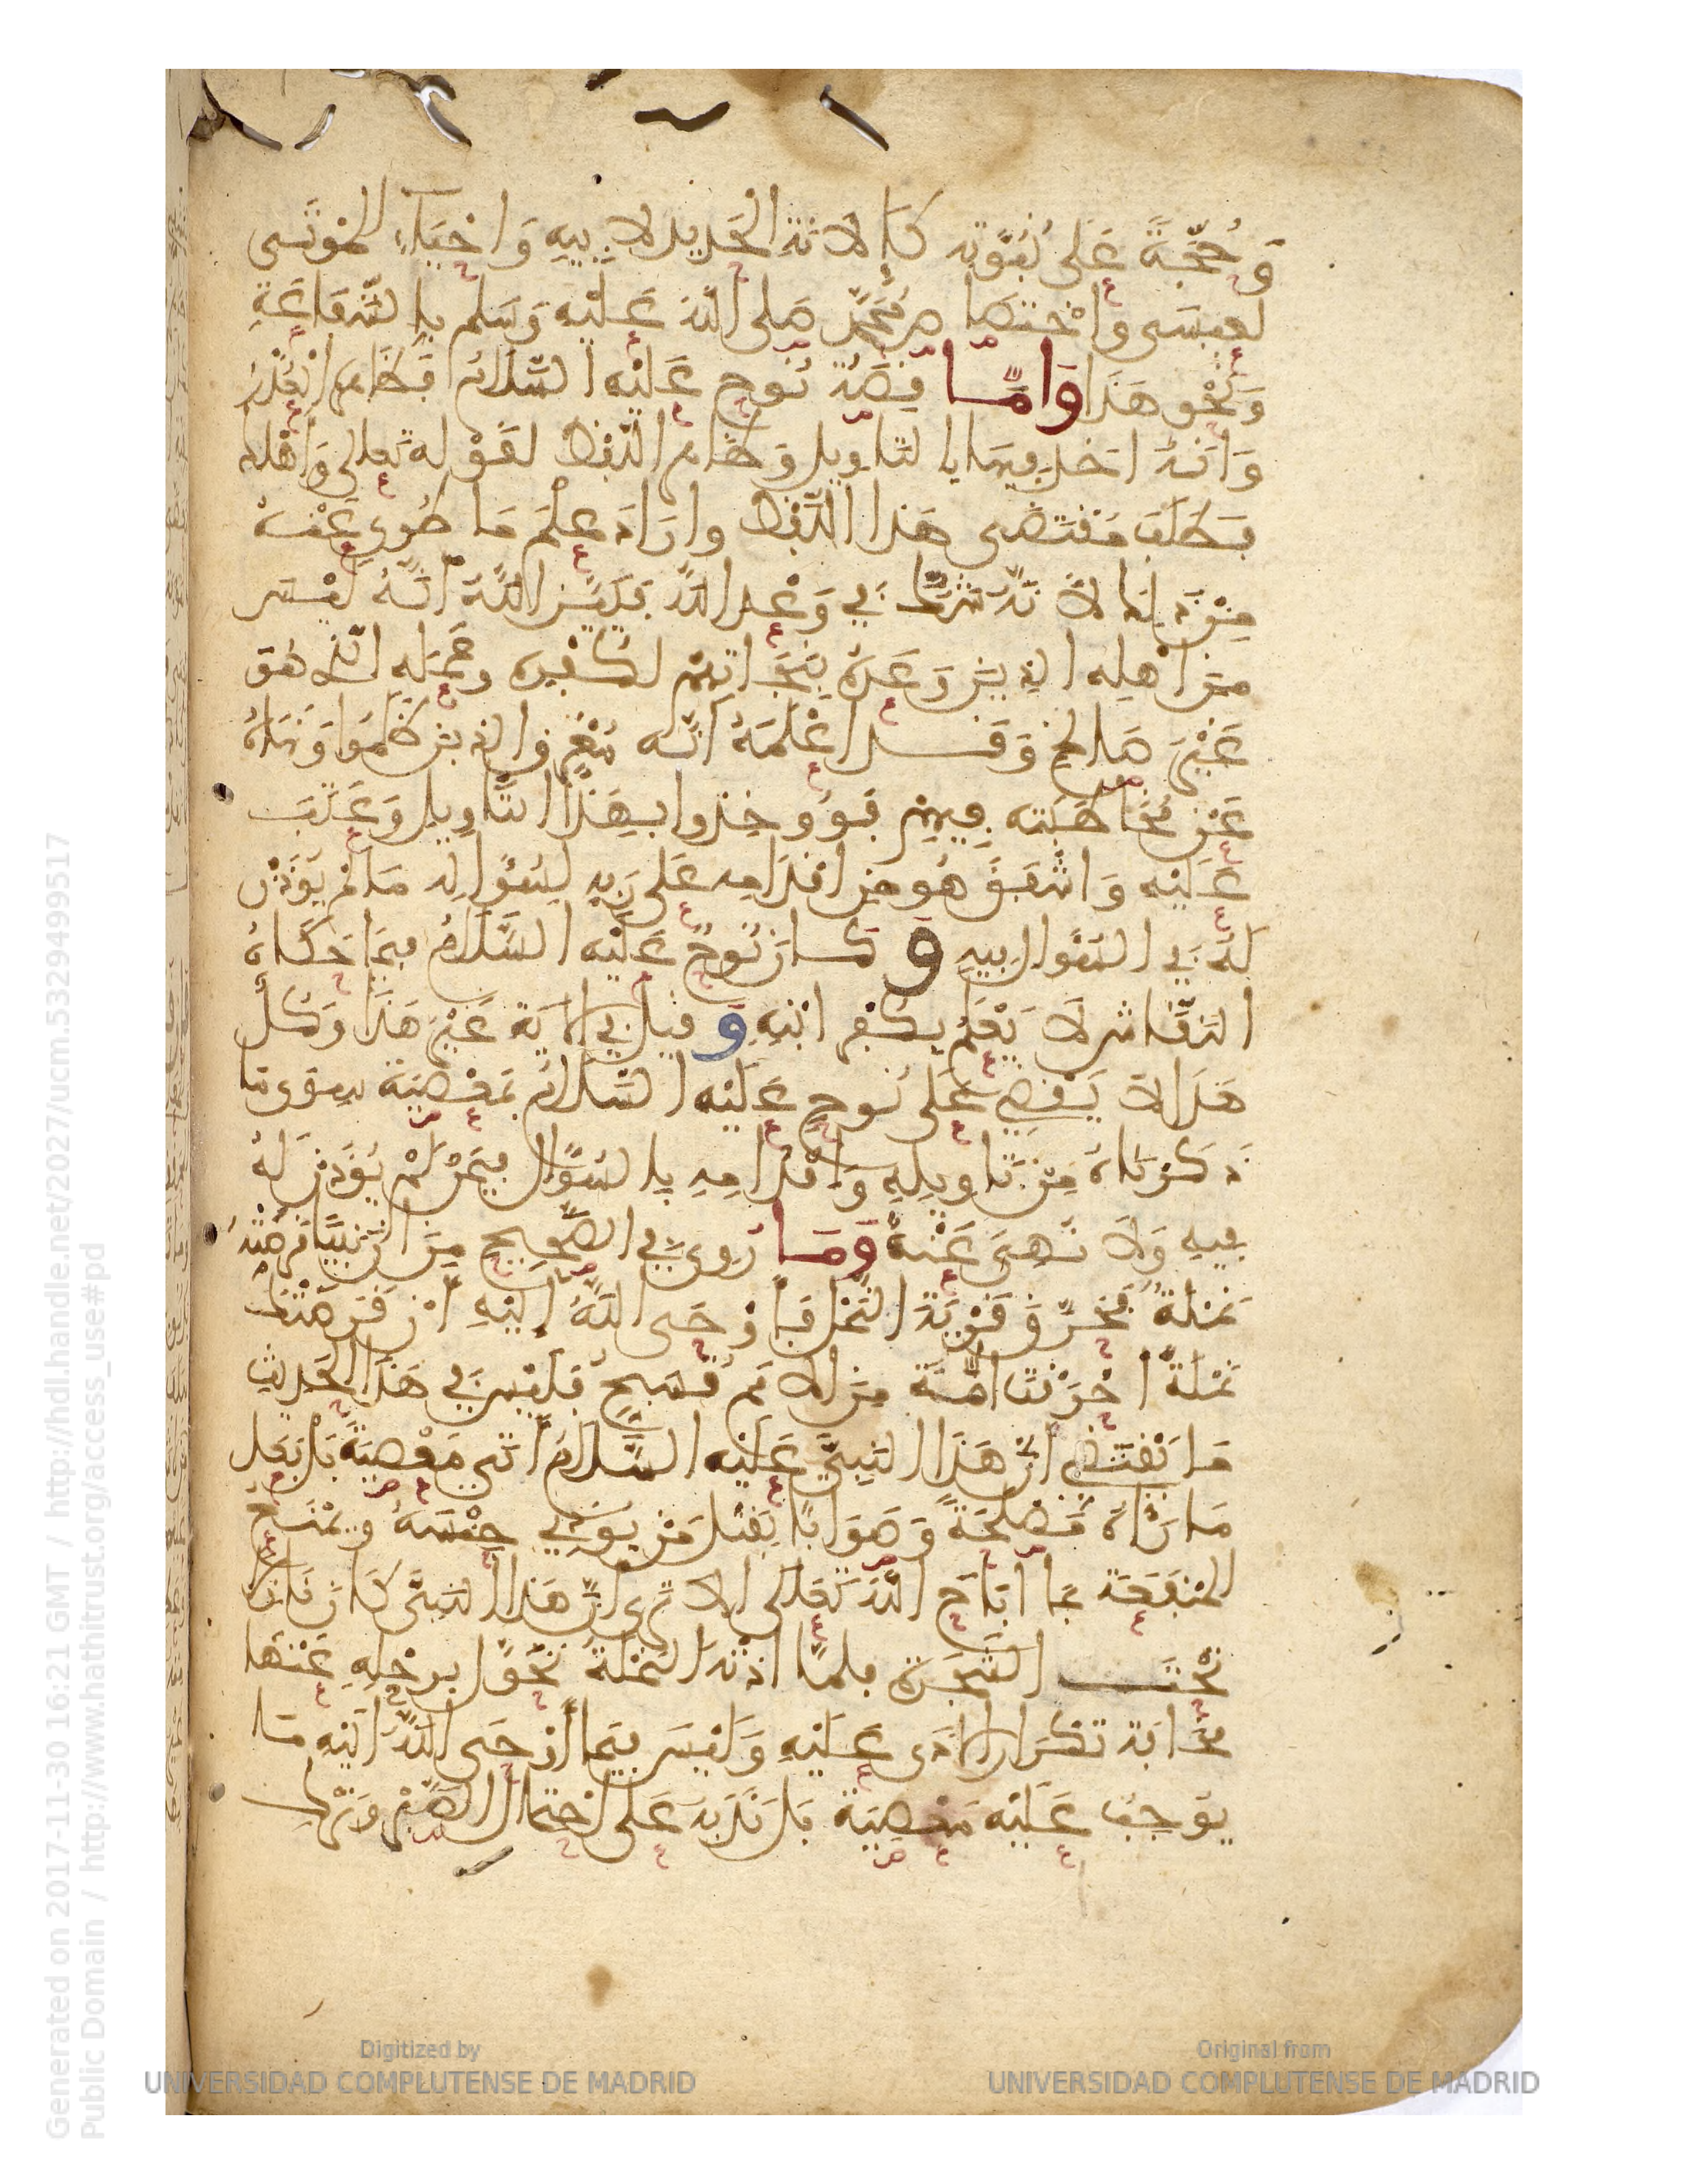 وَحُجَّةً عَلى نُبُوَّتِه كَإِلَانَةِ الْحَدِيدِ لِأَبِيهِ وَاحْيَاءِ الْمَوْتَى
لعِيسَى واخْتِصَاصِ مُحَمَّدٍ صَلى اللهُ عَلَيْهِ وَسَلم بِالشَّفَاعَةِ
وَنَحْوِ هَذَا وَامَّا قِصَّةُ نُوحٍ عَلَيْهِ السَّلَامُ فَظَاهِرَةُ الْعُذْرِ
وَانَّهُ اخَذَ فِيهَا بِالتَّاوِيلِ وَظَاهِرِ اللَّفْظِ لقَوْلِه تَعالى وَأَهْلَكَ
فَطَلَبَ مُقْتَضَى هَذا اللَّفْظِ وارَادَ عِلْمَ مَا طُوِيَ عَنْهُ
مِنْ ذَلِكَ لَا أَنَّهُ شَكَّ فِي وَعْدِ اللهِ فَبَيَّنَ اللهُ أَنَّهُ لَيْسَ
مِنْ أَهْلِه الذِينَ وَعَدَهُ بِنَجَاتِهِمْ لكُفْرِه وعَمَلِه الَّذِي هُوَ
غَيْرُ صَالِحٍ وَقَد اعْلَمَهُ أَنَّه مُغْرِق الذِينَ ظَلَمُوا وَنَهَاهُ
عَنْ مُخَاطَبَتِه فِيهِمْ فَوُوخِذَ بِهَذَا التَّاوِيلِ وَعُتِبَ
عَلَيْهِ وَاشْفَقَ هُوَ مِنِ اقْدَامِهِ عَلى رَبِّهِ لِسُؤَالِه مَا لَمْ يُؤْذَنْ
لَهُ فِي السُّؤَالِ فِيهِ وَكَانَ نُوحٌ عَلَيْهِ السَّلَامُ فِيمَا حَكَاهُ
النَّقَّاش لَا يَعْلَمُ بِكُفْرِ ابْنِهِ وَقِيلَ فِي الايَةِ غَيْرُ هَذَا وَكُلُّ
هَذَا لَا يَقْضِي عَلَى نُوحٍ عَلَيْهِ السَّلَامُ بِمَعْصِيَةٍ سِوَى مَا
ذَكَرْنَاهُ مِنْ تَاوِيلِهِ وَاقْدَامِهِ بِالسُّؤَالِ فِيمَنْ لَمْ يُؤْذَنْ لَهُ
فِيهِ وَلَا نُهِيَ عَنْهُ وَمَا رُوِيَ فِي الصَّحِيحِ مِنَ انَّ نَبِيًّا قَرَصَتْهُ
نَمْلَةٌ فَحَرَّقَ قَرْيَةَ النَّمْلِ فَأَوْحَى اللهُ إِلَيْهِ أَنْ قَرَصَتْكَ
نَمْلَةٌ احْرَقْتَ امَّةً مِنَ الامَمِ تُسَبِّحُ فَلَيْسَ فِي هَذَا الحَدِيثِ
مَا يَقْتَضِي أَنَّ هَذَا النَّبِيَّ عَلَيْهِ السَّلَامُ أَتَى مَعْصِيَةً بَلْ فَعَلَ
مَا رَآهُ مَصْلَحَةً وَصَوَابًا بِقَتْلِ مَنْ يُوذِي جِنْسُهُ وَيَمْنَعُ
الْمَنْفَعَةَ بِمَا ابَاحَ اللهُ تَعَالَى الَا تَرَى انَّ هَذَا النَّبِيَّ كَانَ نَازِلًا
تَحْتَ الشَّجَرَةِ فلمَّا اذَتْهُ النَّمْلَةُ تَحَوَّلَ بِرَحْلِهِ عَنْهَا
مَخَافَةَ تَكْرَارِ الاذَى عَلَيْهِ وَلَيْسَ فِيمَا أَوْحَى اللهُ الَيْهِ مَا
يُوجِبُ عَلَيْهِ مَعْصِيَةً بَلْ نَدَبَهُ عَلَى احْتِمَالِ الصَّبْرِ وَتَرْكِ
Generated on 2017-11-30 16:21 GMT / http://hdl.handle.net/2027/ucm.5329499517
Public Domain / http://www.hathitrust.org/access_use#pd
Digitized by
UNIVERSIDAD COMPLUTENSE DE MADRID
Original from
UNIVERSIDAD COMPLUTENSE DE MADRID